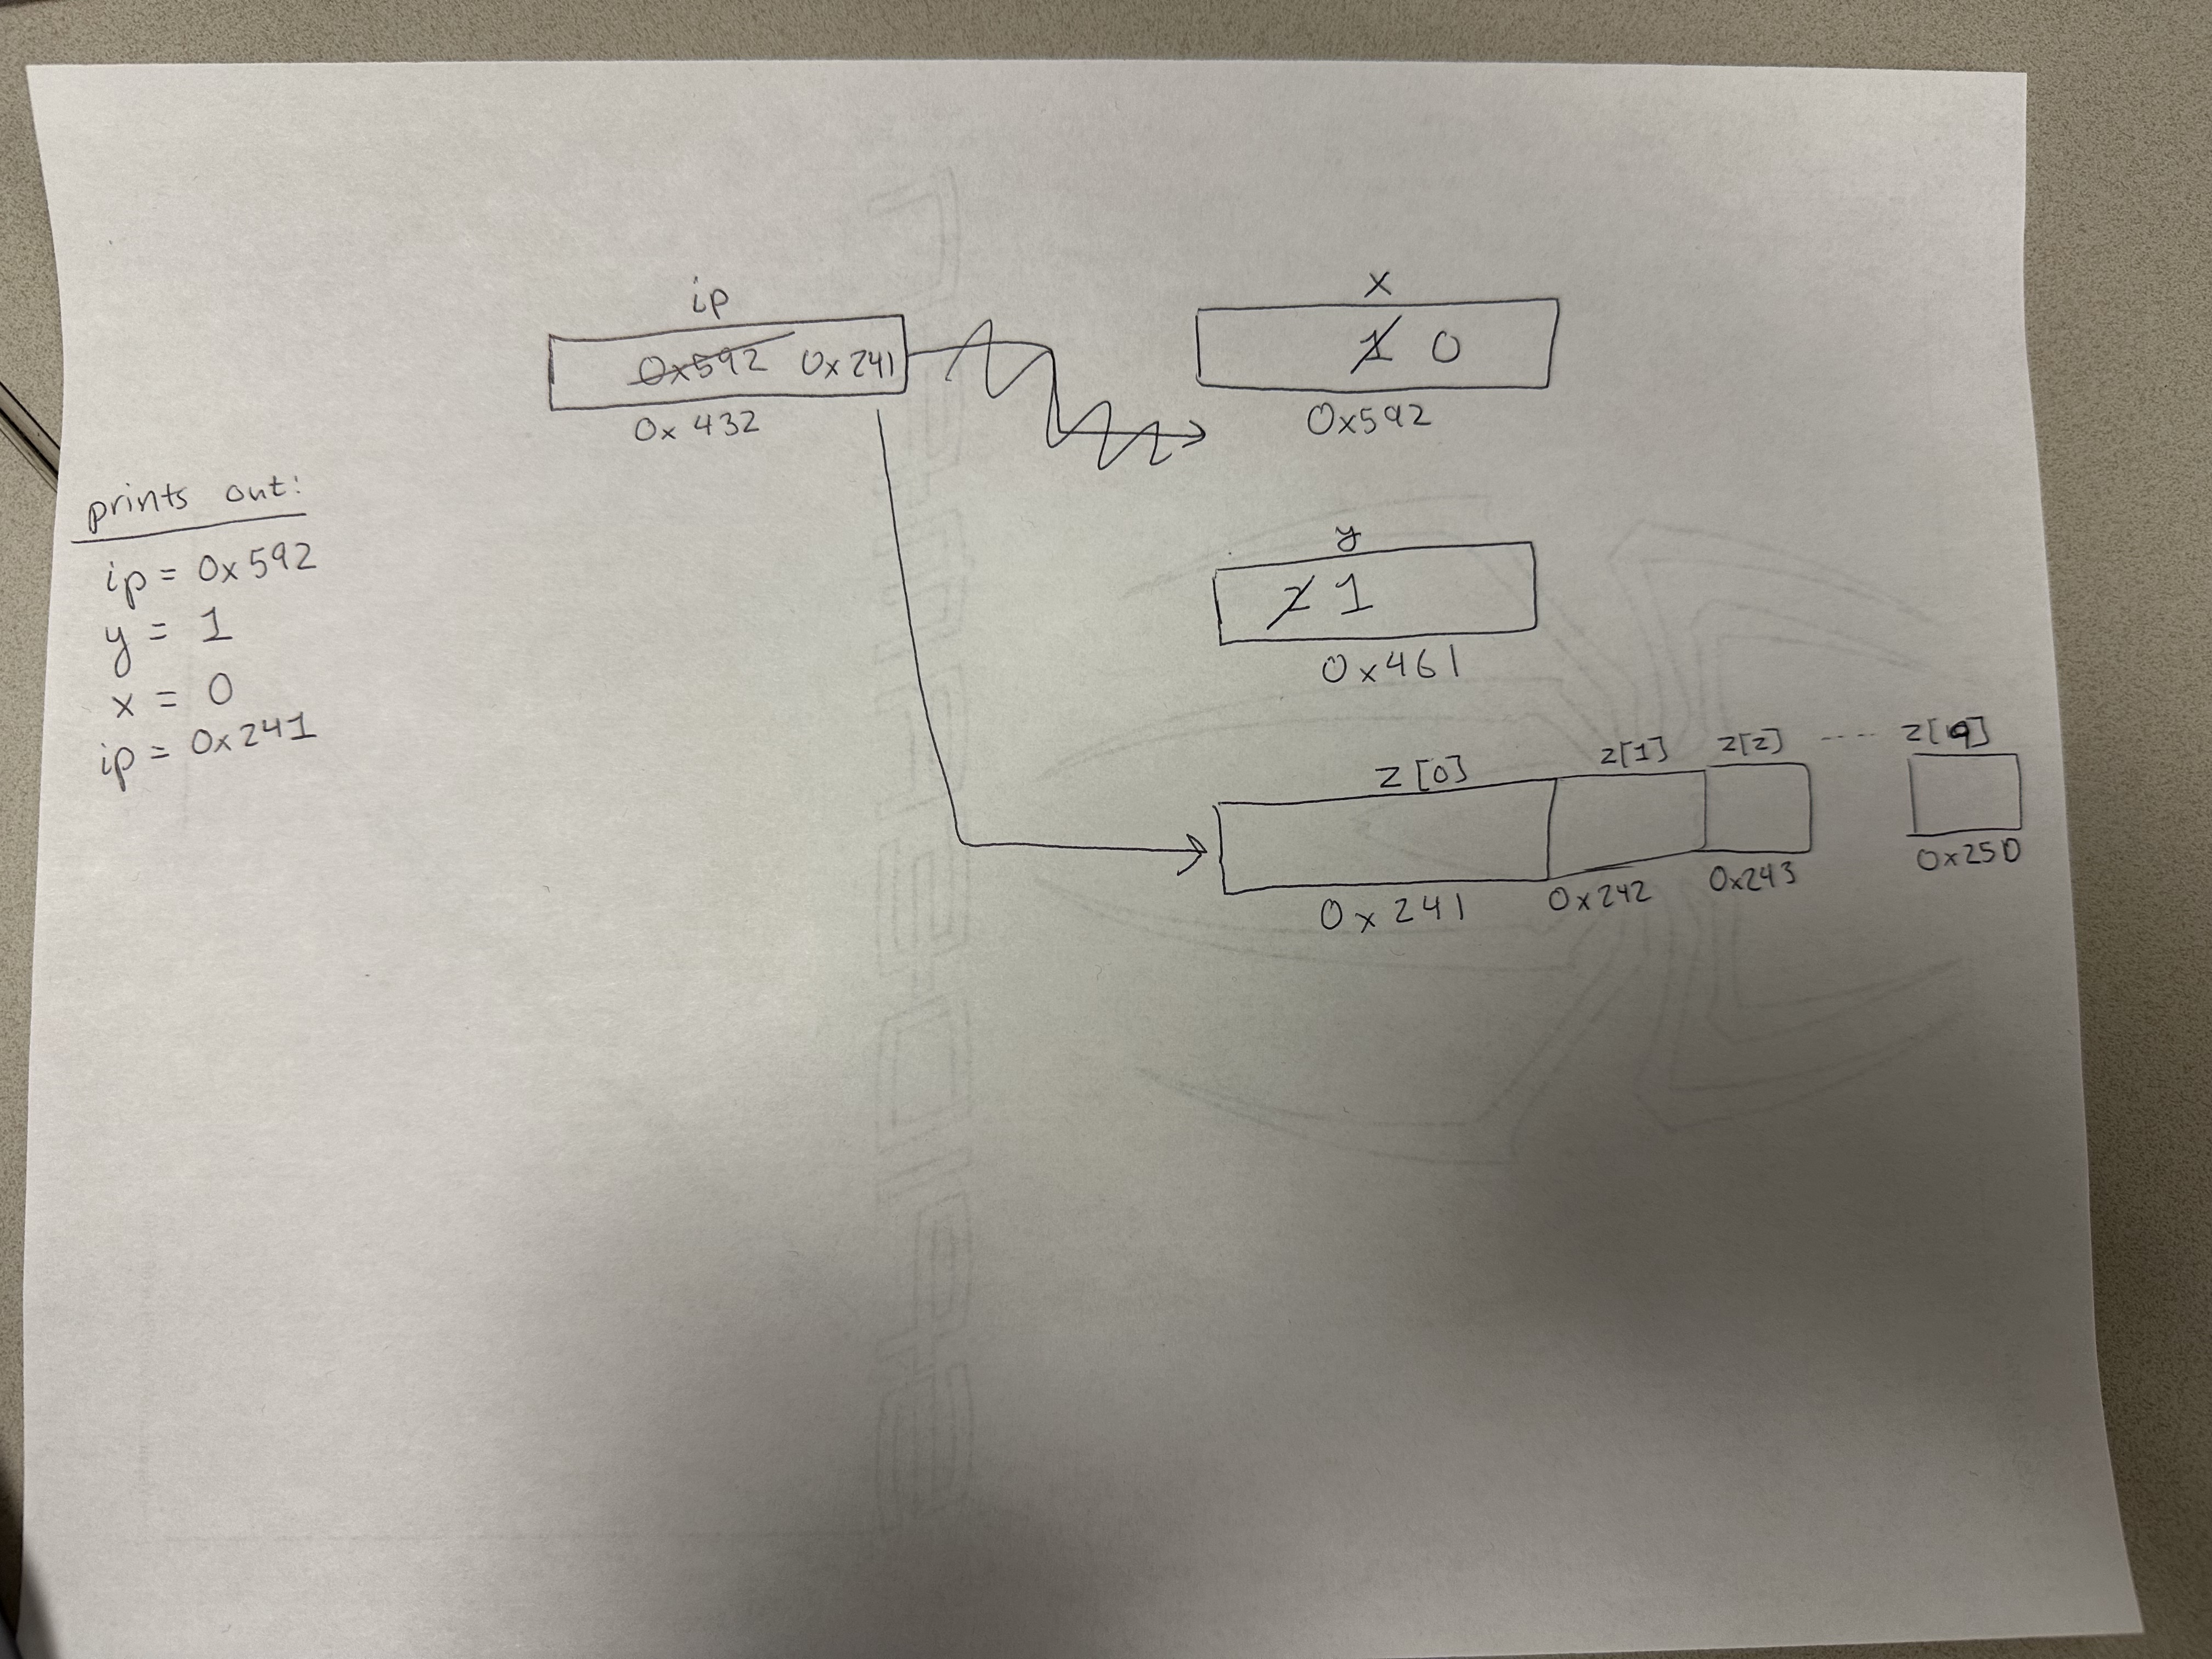 prints out:
ip = 0x592
y = 1
x = 0
ip = 0x241
ip
0x592 0x241
0x432
x
1 0
0x592
y
2 1
0x461
z[0] z[1] z[2] ..... z[9]
0x241 0x242 0x243 0x250